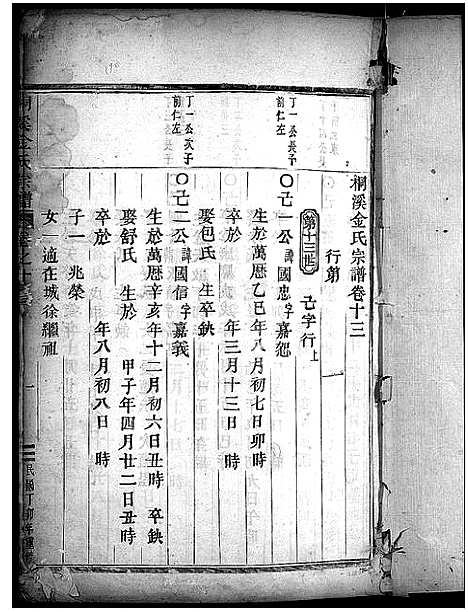 桐溪金氏宗譜卷十三
行第
第十三世 己字行上
丁一公長子
前仁左
〇己一公諱國忠字嘉怨
生於萬曆乙巳年八月初七日卯時
卒於 年三月十三日 時
娶包氏 生卒缺
丁一公次子
前仁左
〇己二公諱國信字嘉義
生於萬曆辛亥年十二月初六日丑時 卒缺
娶舒氏 生於 甲子年四月廿二日丑時
卒於 年八月初八日 時
子一 兆榮
女一 適在城徐繼祖
桐溪金氏宗譜
卷之十
一
民國丁卯年重